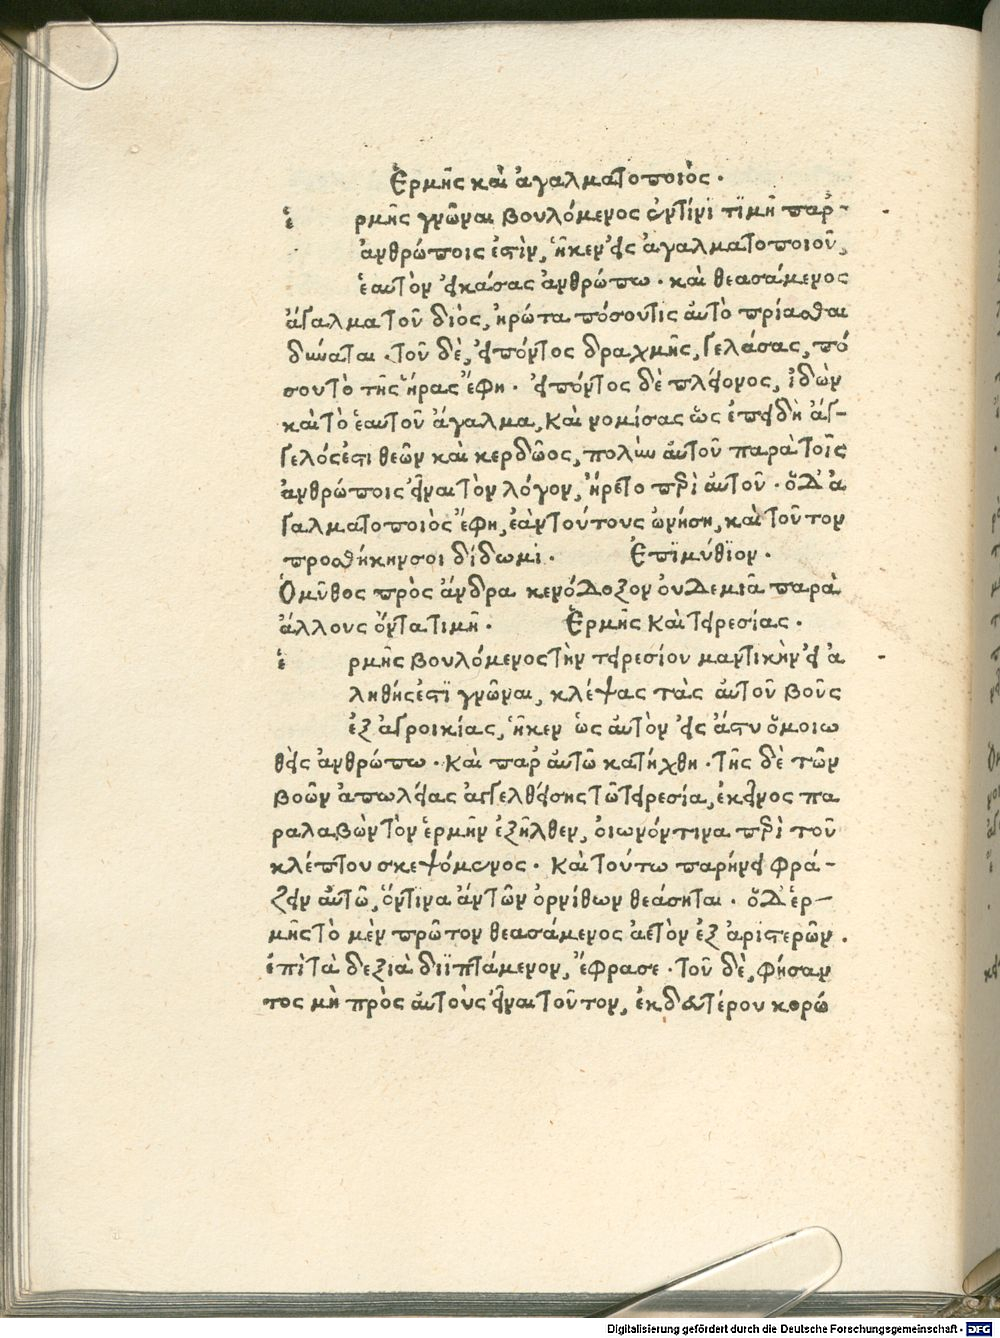 Ἑρμῆς καὶ ἀγαλματοποιός.
ἑ ρμῆς γνῶναι βουλόμενος ἐν τίνι τϊμῆ παρ'
ἀνθρώποις ἐστὶν, ἧκεν εἰς ἀγαλματοποιοῦ,
ἑαυτὸν εἰκάσας ἀνθρώπω. καὶ θεασάμενος
ἄγαλμα τοῦ διὸς, ἠρώτα πόσου τὶς αὐτὸ πρίασθαι
δύναται. τοῦ δὲ, εἰπόντος δραχμῆς, γελάσας, πό
σου τὸ τῆς ἥρας ἔφη. εἰπόντος δὲ πλείονος, ἰδὼν
καὶ τὸ ἑαυτοῦ ἄγαλμα, καὶ νομίσας ὥς ἐπειδὴ ἄγ-
γελός ἐστι θεῶν καὶ κερδῶος, πολὺν αὐτοῦ παρὰ τοῖς
ἀνθρώποις εἶναι τὸν λόγον, ἤρετο περὶ αὐτοῦ. ὅ δ' ἀ
γαλματοποιὸς ἔφη, ἐὰν τούτους ὠνήση, καὶ τοῦτον
προσθήκην σοι δίδωμι. Ἐπϊμύθϊον.
Ὁ μῦθος πρὸς ἄνδρα κενόδοξον οὐδεμιᾶ παρὰ
ἄλλους ὄντα τιμῆ. Ἑρμῆς Καὶ τειρεσίας.
ἑ ρμῆς βουλόμενος τὴν τειρεσίου μαντικὴν εἰ ἀ
ληθής ἐστϊ γνῶναι, κλέψας τὰς αὐτοῦ βοῦς
ἐξ ἀγροικίας, ἧκεν ὡς αὐτὸν εἰς ἄστυ ὅμοιω
θεὶς ἀνθρώπω. Καὶ παρ' αὐτῶ κατήχθη. τῆς δὲ τῶν
βοῶν ἀπωλείας ἀγγελθείσης τῶ τειρεσία, ἐκεῖνος πα
ραλαβὼν τὸν ἑρμῆν ἐξῆλθεν, οἰωνόν τινα περὶ τοῦ
κλέπτου σκεψόμενος. Καὶ τούτω παρήνει φρά-
ζειν αὐτῶ, ὅντινα ἂν τῶν ὀρνίθων θεάσηται. ὅ δ' ἑρ-
μῆς τὸ μὲν πρῶτον θεασάμενος ἀετὸν ἐξ ἀριστερῶν.
ἐπὶ τὰ δεξιὰ διϊπτάμενον, ἔφρασε. τοῦ δὲ, φήσαν
τος μὴ πρὸς αὐτοὺς εἶναι τοῦτον, ἐκ δευτέρου κορώ
Digitalisierung gefördert durch die Deutsche Forschungsgemeinschaft - DFG